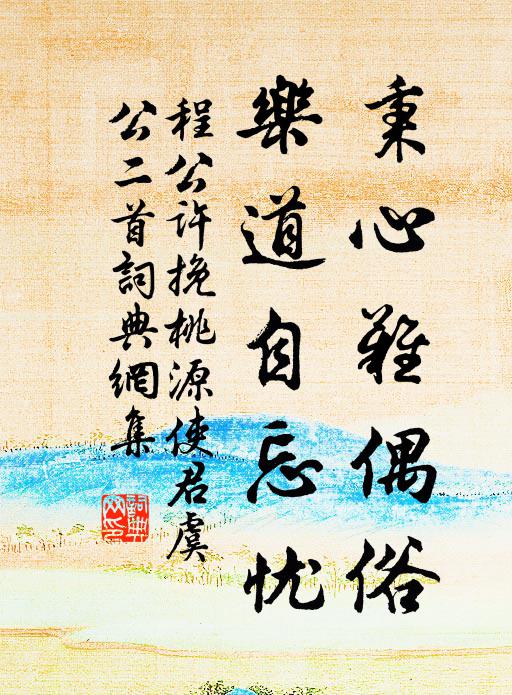 秉心难偶俗
樂道自忘忧
程公许挽桃源使君虞
公二首詞典網集
詞典